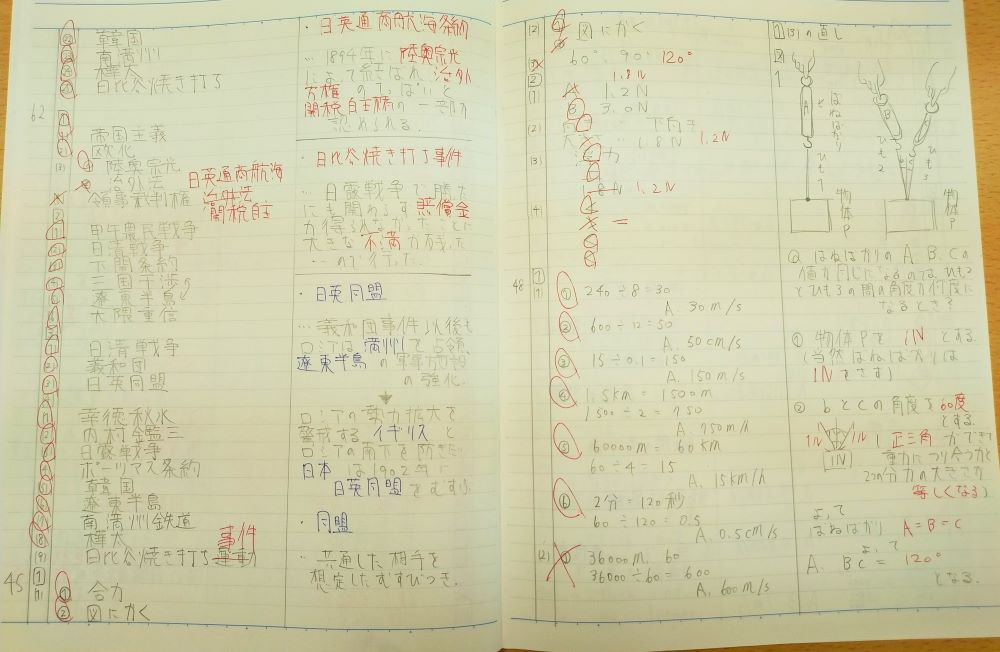 韓国
南満州
樺太
日比谷焼き打ち
62
帝国主義
欧化
(3) ④ 陸奥宗光
治外法
領事裁判権
日英通商航海
治外法
関税自主
甲午農民戦争
日清戦争
下関条約
三国干渉
遼東半島
大隈重信
日清戦争
義和団
日英同盟
幸徳秋水
内村鑑三
日露戦争
ポーツマス条約
韓国
遼東半島
南満州鉄道
樺太 事件
(9) 日比谷焼き打ち運動
45 1
(1) ① 合力
② 図にかく
・日英通商航海条約
…1894年に陸奥宗光
によって結ばれ治外
方権のてっぱいと
関税自主権の一部が
認められる.
・日比谷焼き打ち事件
…日露戦争で勝った
にも関わらず賠償金
が得られなかったことに
大きな不満が残った
…ので行った.
・日英同盟
…義和団事件以後も
ロシアは満州で占領,
遼東半島の軍事施設
の強化.
ロシアの勢力拡大を
警戒するイギリスと
ロシアの南下を防ぎたい
日本は1902年に
日英同盟をむすぶ
・同盟
…共通した相手を
想定したむすびつき.
(2) 図にかく
60° 90° 120°
1.8N
(1) A 1.2N
B 3.0N
(2) 下向き
1.8N 1.2N
(3)
1.8N 1.2N
(4)
=
48 1
(1) ① 240÷8=30
A. 30m/s
② 600÷12=50
A. 50cm/s
③ 15÷0.1=150
A. 150m/s
④ 1.5km=1500m
1500÷2=750
A. 750m/h
⑤ 60000m=60km
60÷4=15
A. 15km/h
⑥ 2分=120秒
60÷120=0.5
A. 0.5cm/s
(2) ① 36000m. 60
36000÷60=600
A. 600m/s
1 (3)の直し
図
1
A
ばねばかり
ひも1
物体P
B
C
ひも2
ひも3
物体P
Q ばねばかりのA.B.Cの
値が同じになるのは,ひも2
とひも3の間の角度が何度に
なるとき?
① 物体Pを1Nとする.
(当然ばねばかりは
1Nをさす)
② bとCの角度を60度
とする.
1N 1N
1N
(正三角ができて
重力につり合う力と
2つの分力の大きさが
等しくなる)
よって
ばねばかり A=B=C
よって
A. BC=120°
となる.